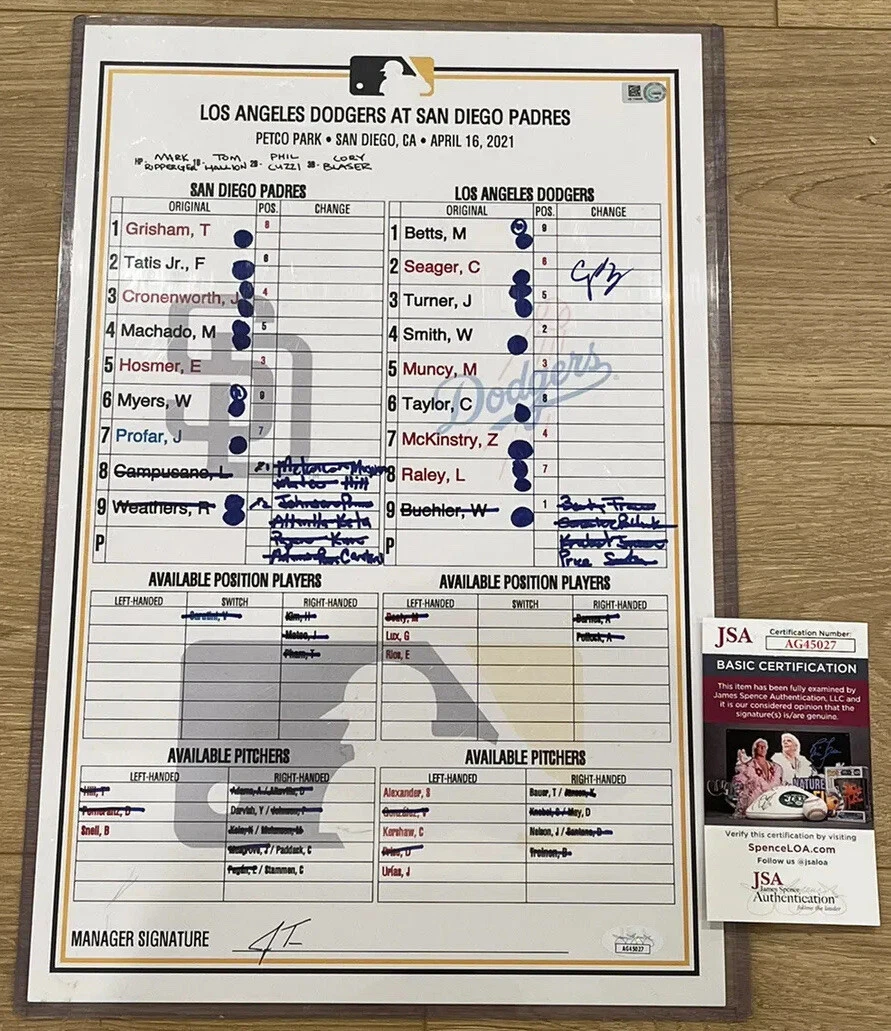 LOS ANGELES DODGERS AT SAN DIEGO PADRES
PETCO PARK • SAN DIEGO, CA • APRIL 16, 2021
HP- MARK RIPPERGER 1B- TOM HALLION 2B- PHIL CUZZI 3B- CORY BLASER
SAN DIEGO PADRES
ORIGINAL POS. CHANGE
1 Grisham, T 8
2 Tatis Jr., F 6
3 Cronenworth, J 4
4 Machado, M 5
5 Hosmer, E 3
6 Myers, W 9
7 Profar, J 7
8 Campusano, L
Hill
9 Weathers, R
P
LOS ANGELES DODGERS
ORIGINAL POS. CHANGE
1 Betts, M 9
2 Seager, C 6
3 Turner, J 5
4 Smith, W 2
5 Muncy, M 3
6 Taylor, C 8
7 McKinstry, Z 4
8 Raley, L 7
9 Buehler, W 1
Price
P
Dodgers
AVAILABLE POSITION PLAYERS
LEFT-HANDED SWITCH RIGHT-HANDED
Caratini, V Kim, H
Mateo, J
Pham, T
AVAILABLE POSITION PLAYERS
LEFT-HANDED SWITCH RIGHT-HANDED
Beaty, M Barnes, A
Lux, G Pollock, A
Rios, E
AVAILABLE PITCHERS
LEFT-HANDED RIGHT-HANDED
Hill, T Adams, A / Altavilla, D
Pomeranz, D Darvish, Y / Johnson, P
Snell, B Kela, K / Melancon, M
Musgrove, J / Paddack, C
Pagán, E / Stammen, C
AVAILABLE PITCHERS
LEFT-HANDED RIGHT-HANDED
Alexander, S Bauer, T /
González, V Knebel, C / May, D
Kershaw, C Nelson, J / Santana, D
Price, D Treinen, B
Urías, J
MANAGER SIGNATURE
AG45027
JSA Certification Number:
AG45027
BASIC CERTIFICATION
This item has been fully examined by
James Spence Authentication, LLC and
it is our considered opinion that the
signature(s) is/are genuine.
NATURE
JETS
Verify this certification by visiting
SpenceLOA.com
Follow us @jsaloa
JSA
James Spence
Authentication